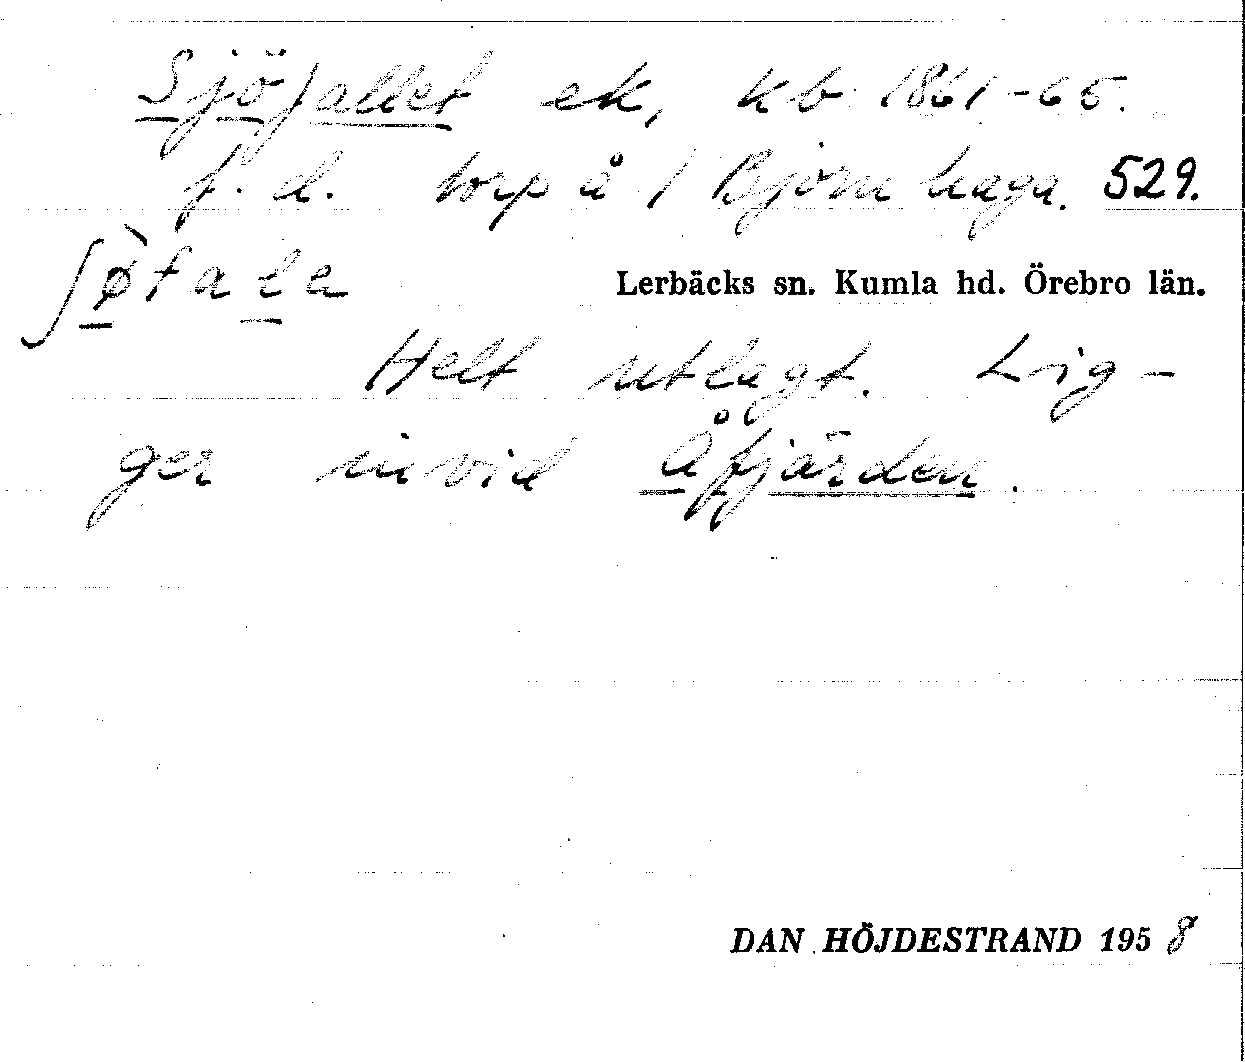 Sjöfallet ek, kb 1861-65.
f.d. torp å 1 Björnhaga. 529.
ʃø̀fale
Lerbäcks sn. Kumla hd. Örebro län.
Helt utlagt. Lig-
ger invid Åfjärden.
DAN HÖJDESTRAND 1958